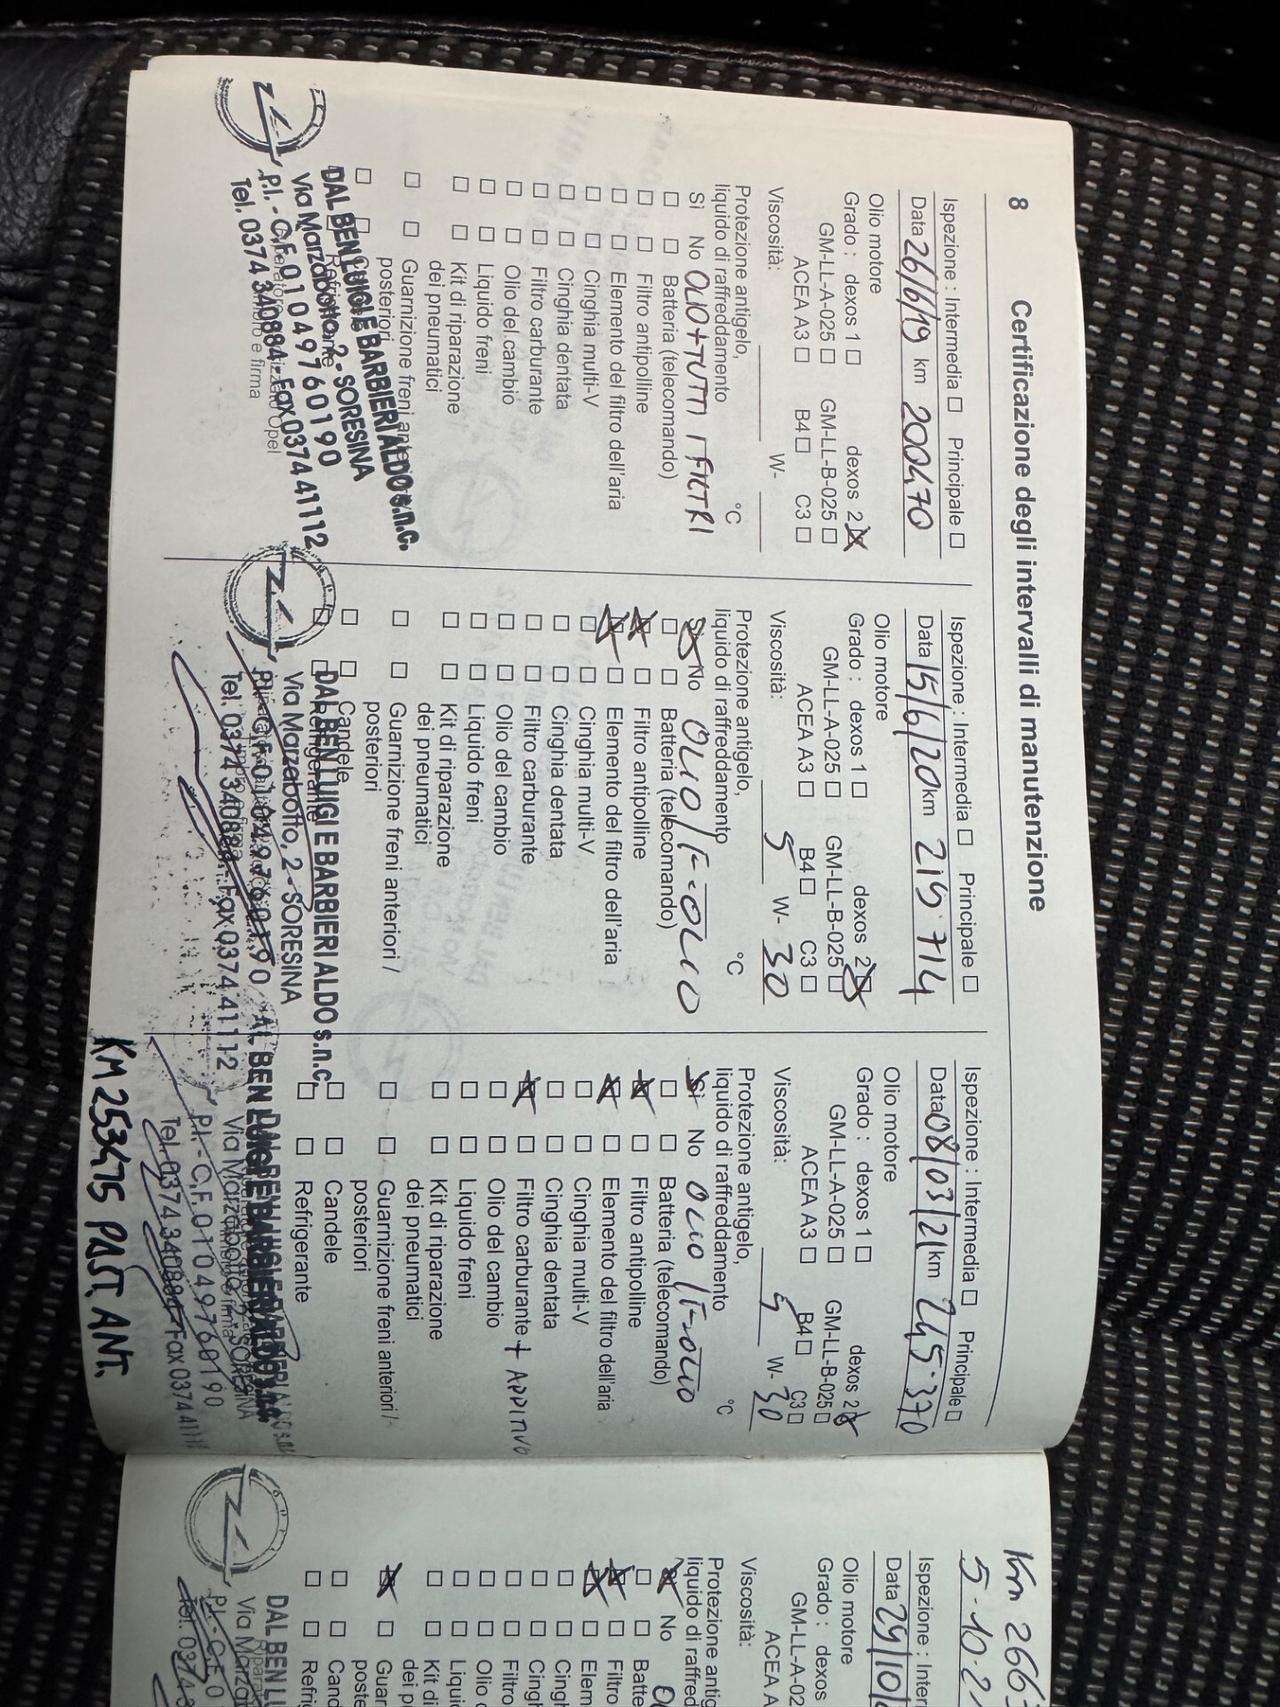 8
Certificazione degli intervalli di manutenzione
Ispezione : Intermedia □ Principale □
Data 26/6/19 km 200470
Olio motore
Grado : dexos 1 □ dexos 2 ☒
GM-LL-A-025 □ GM-LL-B-025 □
ACEA A3 □ B4 □ C3 □
Viscosità: W-
Protezione antigelo,
liquido di raffreddamento °C
Sì No OLIO + TUTTI I FILTRI
□ □ Batteria (telecomando)
□ □ Filtro antipolline
□ □ Elemento del filtro dell'aria
□ □ Cinghia multi-V
□ □ Cinghia dentata
□ □ Filtro carburante
□ □ Olio del cambio
□ □ Liquido freni
□ □ Kit di riparazione
dei pneumatici
□ □ Guarnizione freni
posteriori
DAL BEN LUIGI E BARBIERI ALDO s.n.c.
Via Marzabotto, 2 - SORESINA
P.I. - C.F. 01049760190
Tel. 0374 340884 - Fax 0374 41112
Ispezione : Intermedia □ Principale □
Data 15/6/20 km 219.714
Olio motore
Grado : dexos 1 □ dexos 2 ☒
GM-LL-A-025 □ GM-LL-B-025 □
ACEA A3 □ B4 □ C3 □
Viscosità: 5 W- 30
Protezione antigelo,
liquido di raffreddamento °C
Sì No OLIO / F-OLIO
□ □ Batteria (telecomando)
☒ □ Filtro antipolline
☒ □ Elemento del filtro dell'aria
□ □ Cinghia multi-V
□ □ Cinghia dentata
□ □ Filtro carburante
□ □ Olio del cambio
□ □ Liquido freni
□ □ Kit di riparazione
dei pneumatici
□ □ Guarnizione freni anteriori /
posteriori
□ □ Candele
DAL BEN LUIGI E BARBIERI ALDO s.n.c.
Via Marzabotto, 2 - SORESINA
P.I. - C.F. 01049760190
Tel. 0374 340884 - Fax 0374 41112
Ispezione : Intermedia □ Principale □
Data 08/03/21 km 245.370
Olio motore
Grado : dexos 1 □ dexos 2 ☒
GM-LL-A-025 □ GM-LL-B-025 □
ACEA A3 □ B4 □ C3 □
Viscosità: 5 W- 30
Protezione antigelo,
liquido di raffreddamento °C
Sì No OLIO / F-OLIO
□ □ Batteria (telecomando)
☒ □ Filtro antipolline
☒ □ Elemento del filtro dell'aria
□ □ Cinghia multi-V
□ □ Cinghia dentata
☒ □ Filtro carburante + ADDITIVO
□ □ Olio del cambio
□ □ Liquido freni
□ □ Kit di riparazione
dei pneumatici
□ □ Guarnizione freni anteriori /
posteriori
□ □ Candele
□ □ Refrigerante
P.I. - C.F. 01049760190
Tel. 0374 340884 - Fax 0374 41112
KM 253475 PAST. ANT.
Km 266
5-10-2
Ispezione : Inter
Data 29/10/
Olio motore
Grado : dexos
GM-LL-A-02
ACEA A
Viscosità:
Protezione antig
liquido di raffred
No
□ □ Batte
☒ □ Filtro
☒ □ Elem
□ □ Cing
□ □ Cingh
□ □ Filtro
□ □ Olio d
□ □ Liquid
□ □ Kit di
dei p
☒ □ Guar
poste
□ □ Cand
□ □ Refrig
DAL BEN LU
Via Marza
P.I. - C.F. 0
Tel. 0374 3